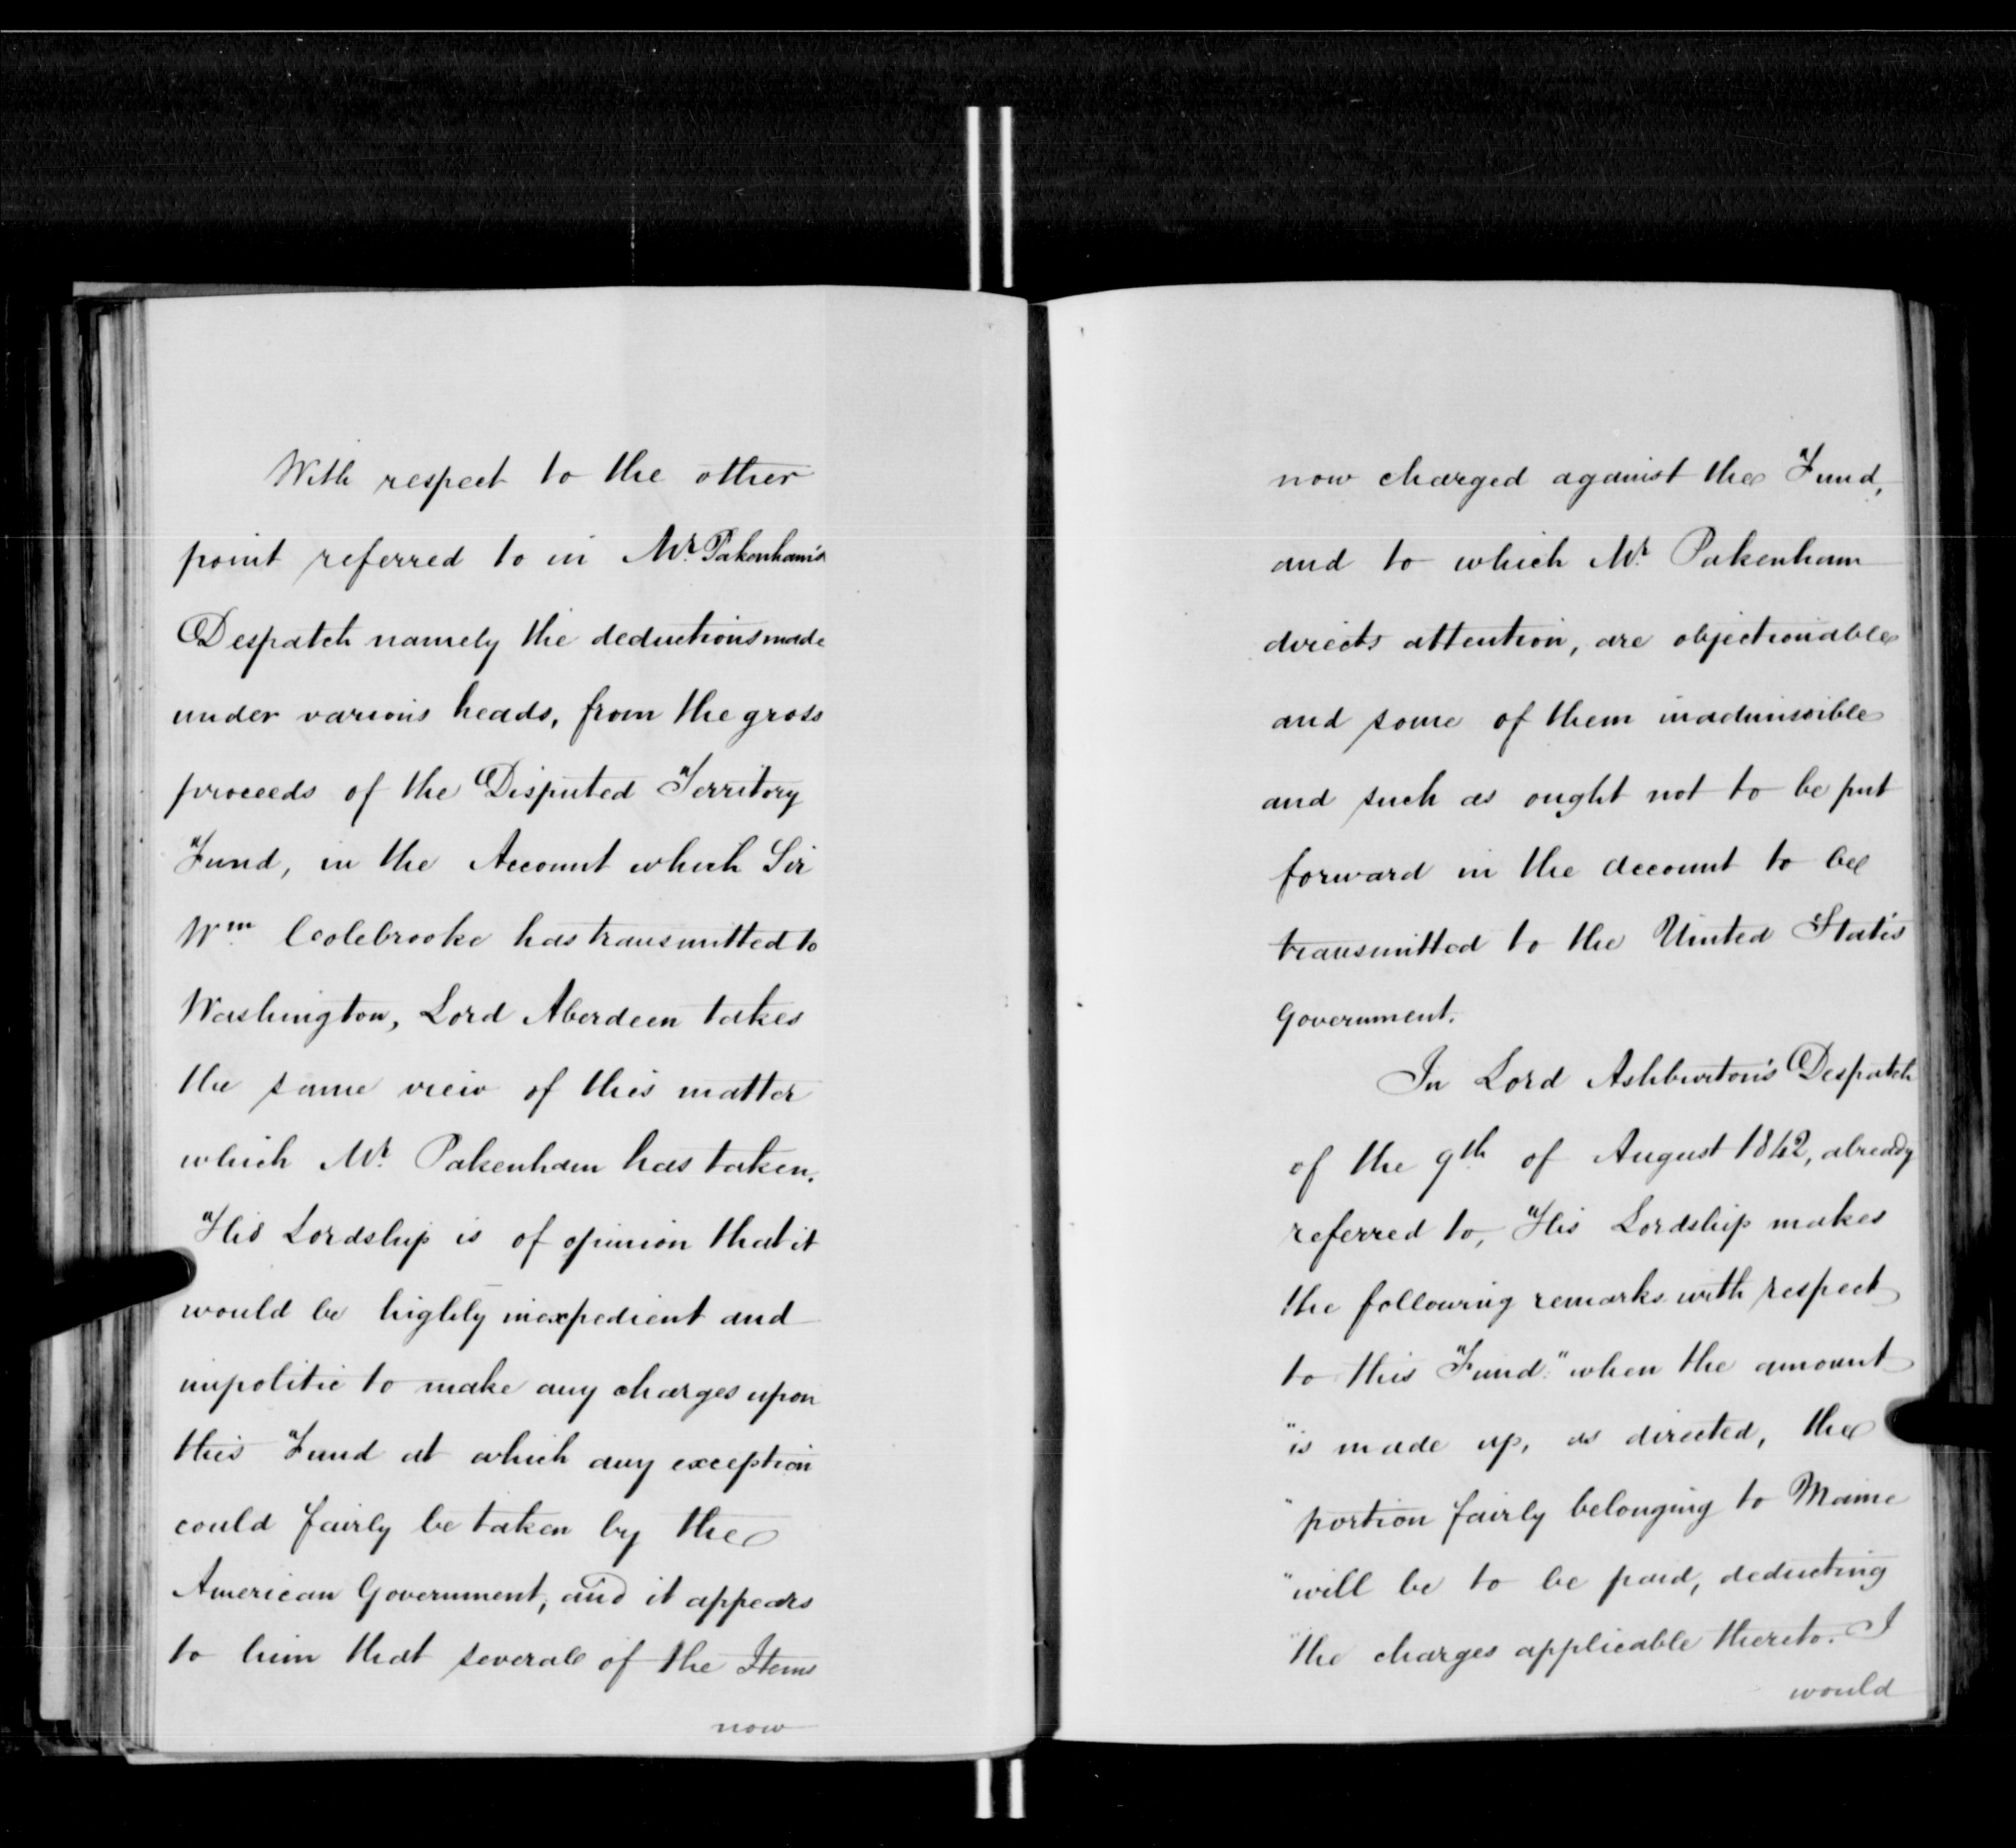 With respect to the other
point referred to in Mr. Pakenham's
Despatch namely the deductions made
under various heads, from the gross
proceeds of the Disputed Territory
Fund, in the Account which Sir
Wm. Coolebrooke has transmitted to
Washington, Lord Aberdeen takes
the same view of this matter
which Mr. Pakenham has taken.
His Lordship is of opinion that it
would be highly inexpedient and
impolitic to make any charges upon
this Fund at which any exception
could fairly be taken by the
American Government, and it appears
to him that several of the Items
now
now charged against the Fund,
and to which Mr. Pakenham
directs attention, are objectionable
and some of them inadmissible
and such as ought not to be put
forward in the account to be
transmitted to the United States
Government.
In Lord Ashburton's Despatch
of the 9th of August 1842, already
referred to, His Lordship makes
the following remarks with respect
to this Fund: "when the amount
"is made up, as directed, the
"portion fairly belonging to Maine
"will be to be paid, deducting
"the charges applicable thereto. I
would